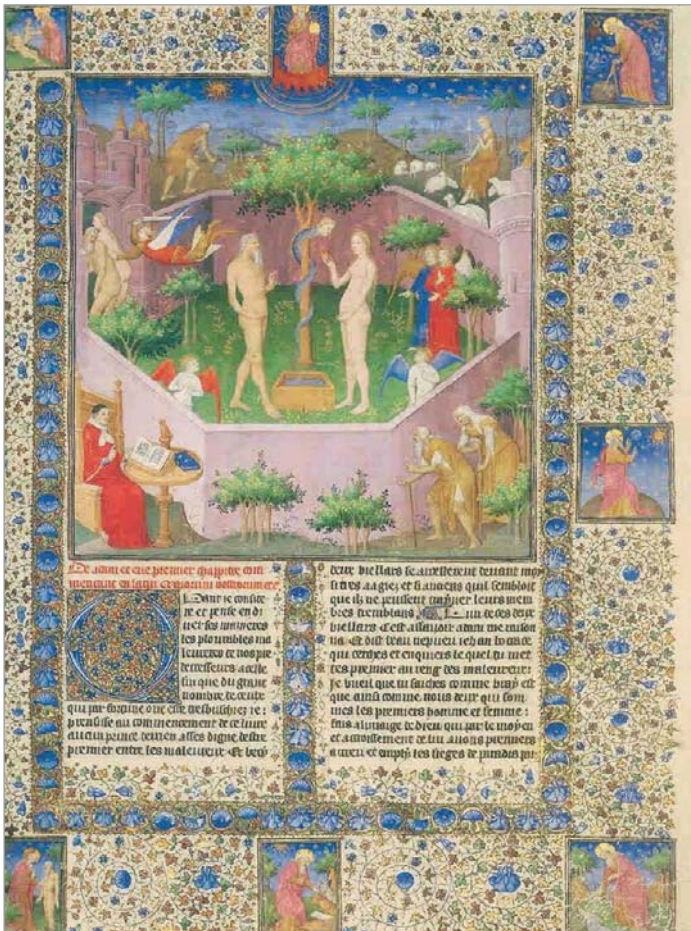 De adam et eue premier chappitre com
mencant en latin
Quant ie conside
re et pense en di
uerses manieres
les plourables ma
leuretez de nos pre
decesseurs a celle
fin que du grant
nombre de ceulx
qui par fortune ont este tresbuschiez ie
prensisse au commencement de ce liure
aucun prince terrien asses digne destre
premier entre les maleureux Et vecy
deux viellars se arresterent deuant moy
si tres aagiez et si anciens quil sembloit
que ilz ne peussent trayner leurs mem
bres tremblans Lun de ces deux
viellars cest assauoir adam me raison
na Et dist beau nepueu iehan bocace
qui cerches et enquiers le quel tu met
tes premier au reng des maleureux
Je vueil que tu saches comme vray est
que ainsi comme nous deux qui som
mes les premiers homme et femme
fais a limaige de dieu qui par le moyen
et accroissement de lui auons premiers
et emply les sieges de paradis